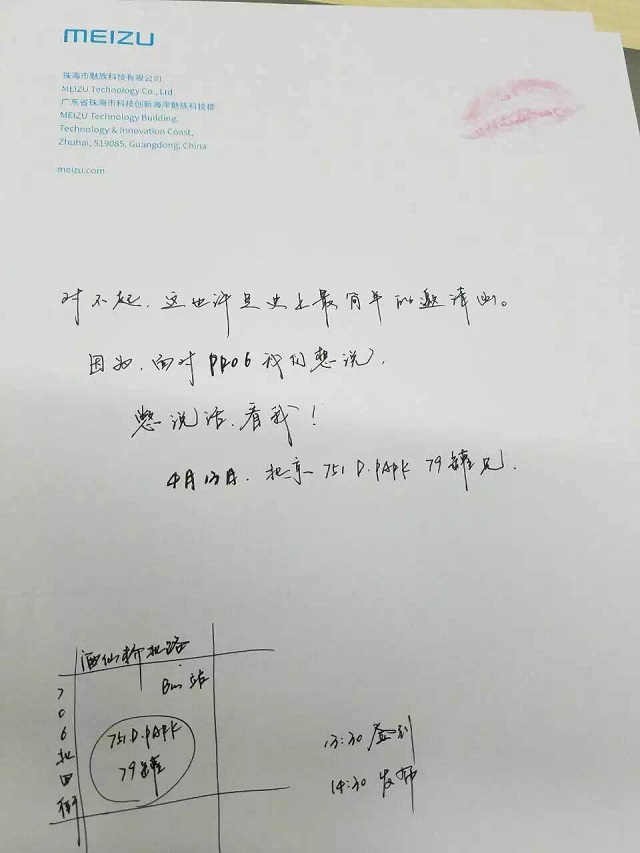 MEIZU
珠海市魅族科技有限公司
MEIZU Technology Co., Ltd
广东省珠海市科技创新海岸魅族科技楼
MEIZU Technology Building,
Technology & Innovation Coast,
Zhuhai, 519085, Guangdong, China
meizu.com
对不起,这也许是史上最简单的邀请函。
因为,面对PRO6我们想说,
憋说话,看我!
4月13日,北京751 D.PARK 79罐见.
酒仙桥北路
Bus站
706北四街
751 D.PARK
79罐
13:30 签到
14:30 发布